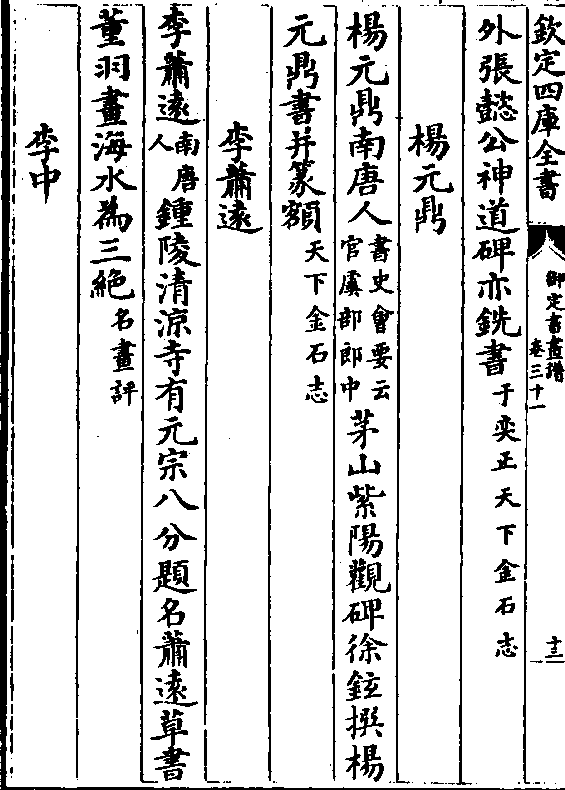 欽定四庫全書
御定書畫譜
卷三十一
十三
外張懿公神道碑亦銑書于奕正天下金石志
楊元鼎
楊元鼎南唐人書史會要云官虞部郎中茅山紫陽觀碑徐鉉撰楊
元鼎書并篆額天下金石志
李蕭遠
李蕭遠南唐人鍾陵清涼寺有元宗八分題名蕭遠草書
董羽畫海水為三絕名畫評
李中